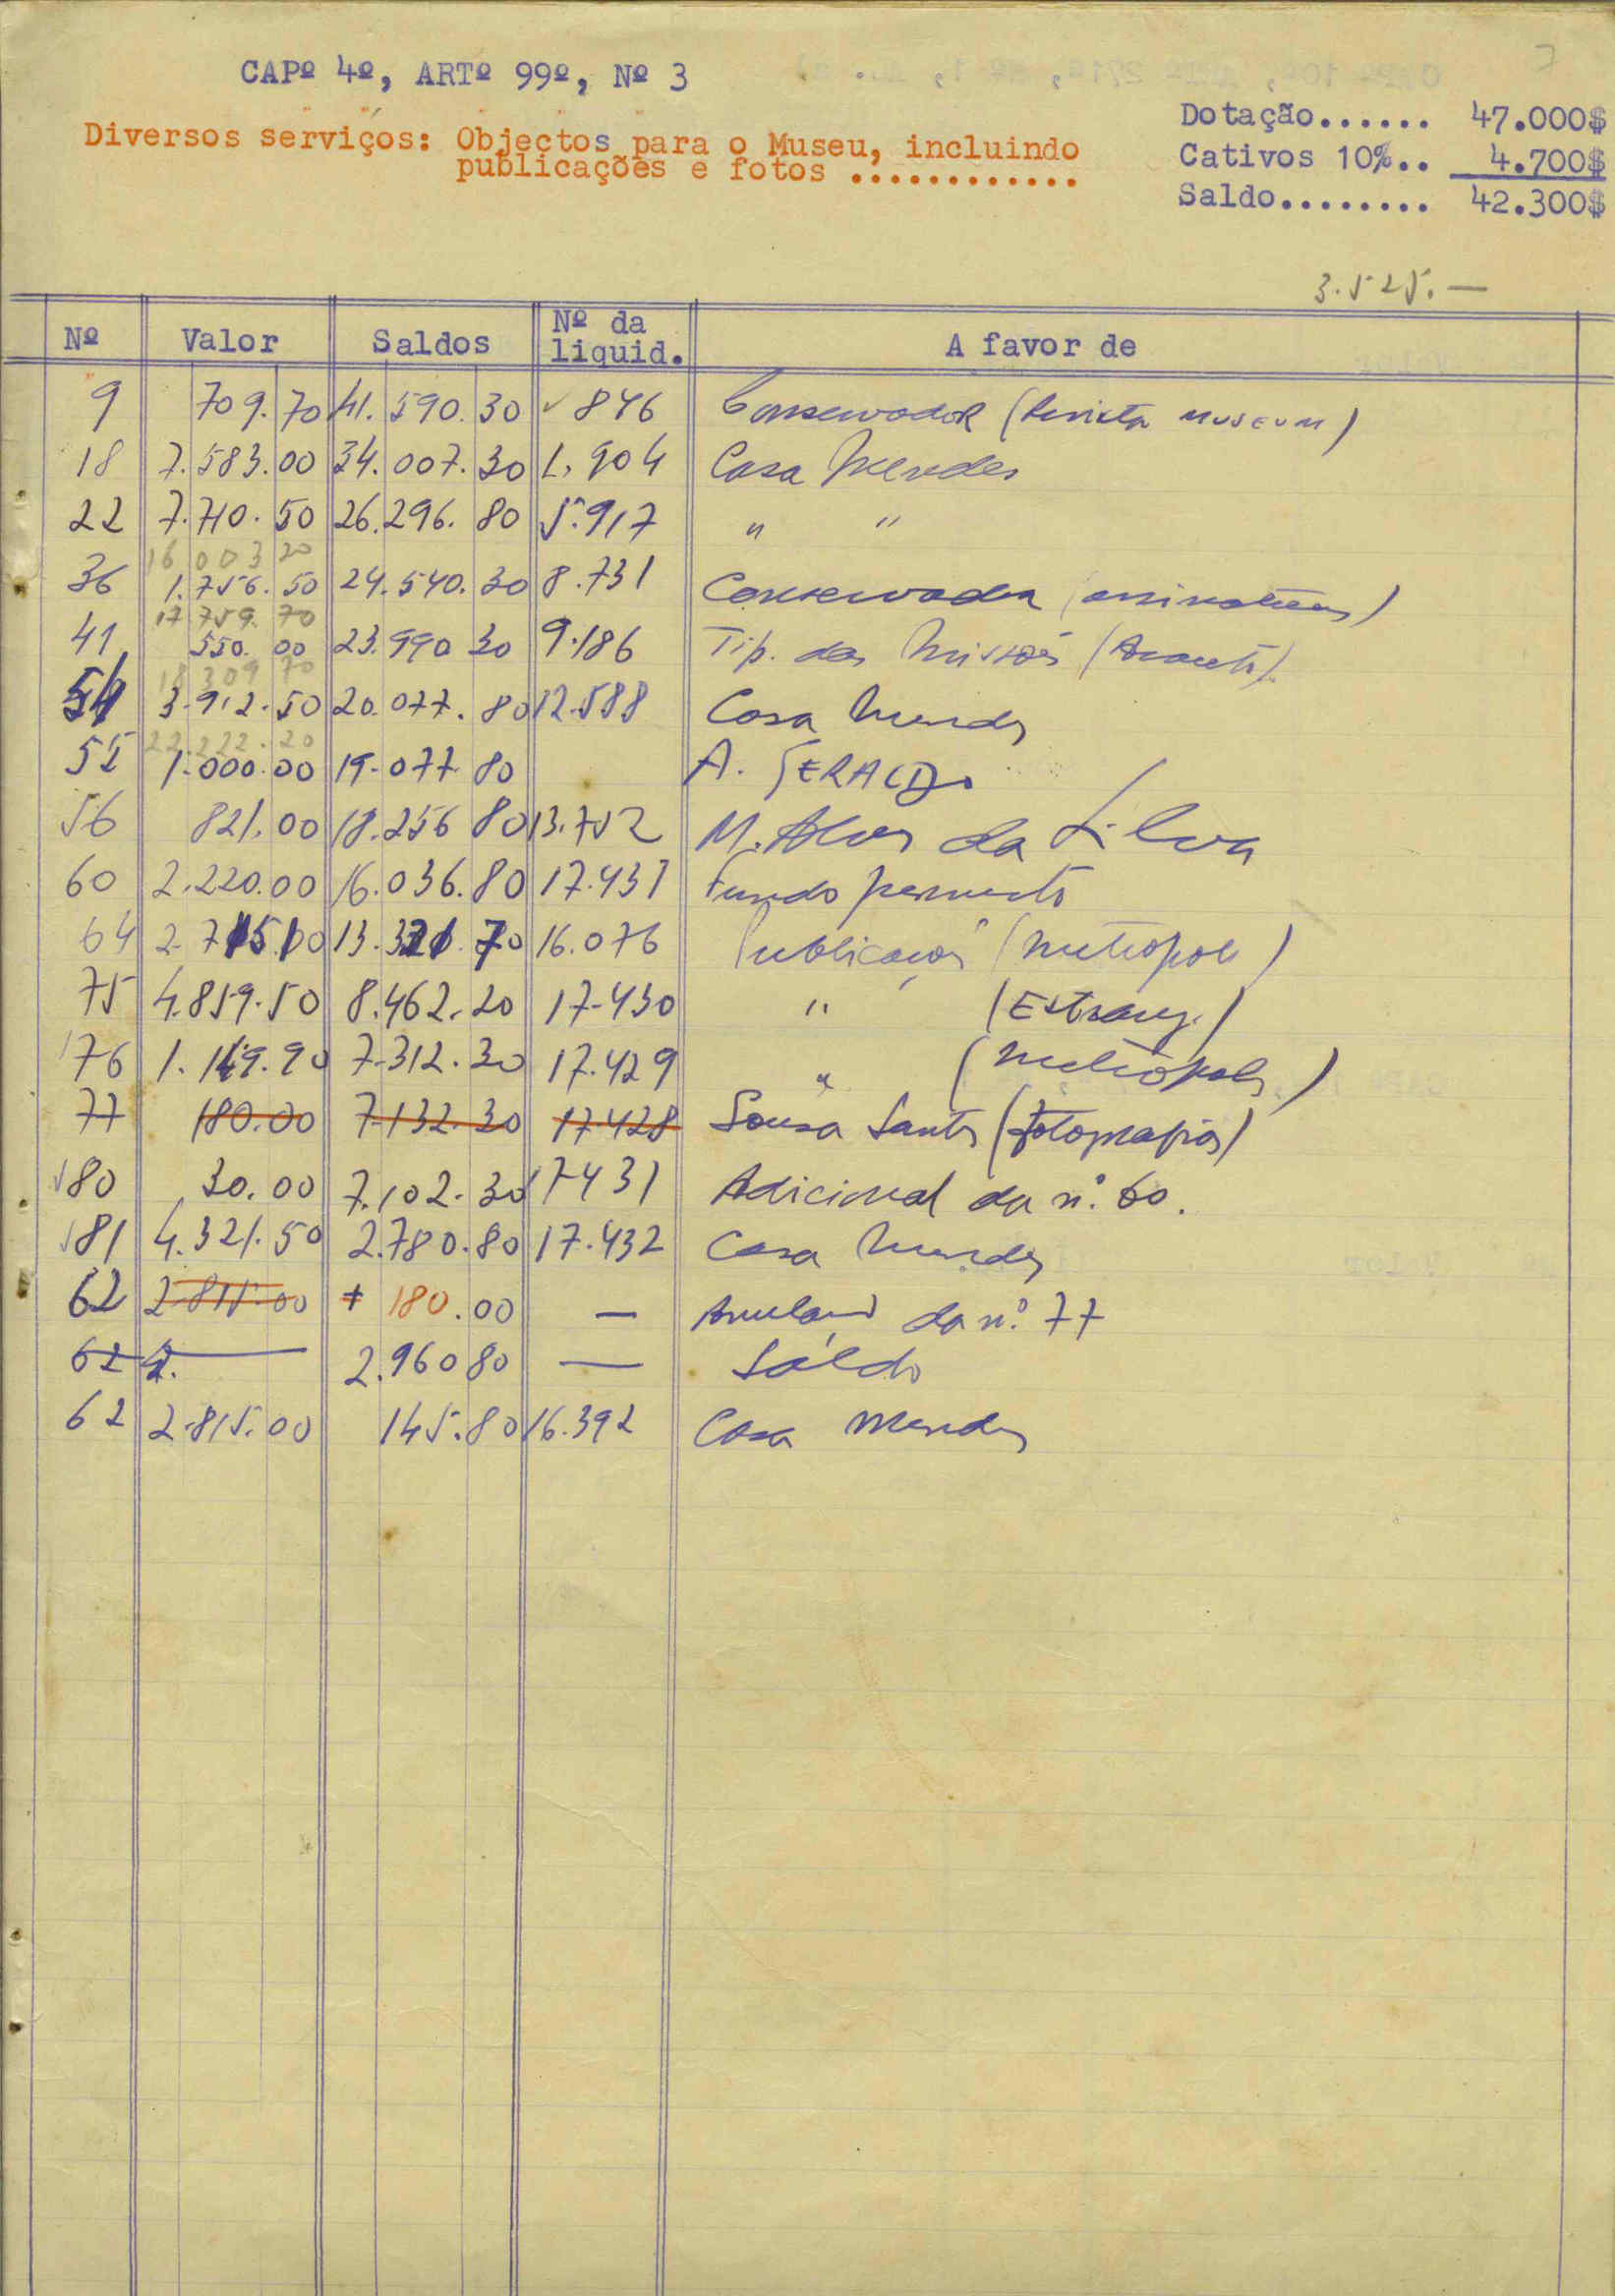 CAPº 4º, ARTº 99º, Nº 3
Diversos serviços: Objectos para o Museu, incluindo
publicações e fotos ............
Dotação...... 47.000$
Cativos 10%.. 4.700$
Saldo........ 42.300$
3.525.—
Nº Valor Saldos Nº da liquid. A favor de
9 709.70 41.590.30 846 Conservador (Revista MUSEUM)
18 7.583.00 34.007.30 1.904 Casa Mendes
22 7.710.50 26.296.80 5.917 " "
16 003 20
36 1.756.50 24.540.30 8.731 Conservador (assinaturas)
17.759.70
41 550.00 23.990 30 9.186 Tip. das Missões
18 309 70
54 3.912.50 20.077.80 12.588 Casa Mendes
22.222.20
55 1.000.00 19.077 80 A. GERALDO
56 821.00 18.256 80 13.752 M. Alves da Silva
60 2.220.00 16.036.80 17.431 Fundo permanente
64 2.715.10 13.321.70 16.076 Publicações (Metropole)
75 4.859.50 8.462.20 17.430 " (Estrang.)
76 1.149.90 7.312.30 17.429 " (Metropole)
77 180.00 7.132.30 17.428 Sousa Santos (fotografias)
80 30.00 7.102.30 17431 Adicional da nº 60.
81 4.321.50 2.780.80 17.432 Casa Mendes
62 2.815.00 + 180.00 — Anulação da nº 77
62 2. 2.960 80 — Saldo
62 2.815.00 145.80 16.392 Casa Mendes